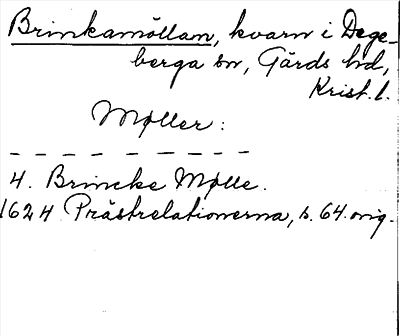 Brinkamöllan, kvarn i Dege-
berga sn, Gärds hd,
Krist. l.
Møller:
4. Brincke Mølle.
1624 Prästrelationerna, s. 64. orig.